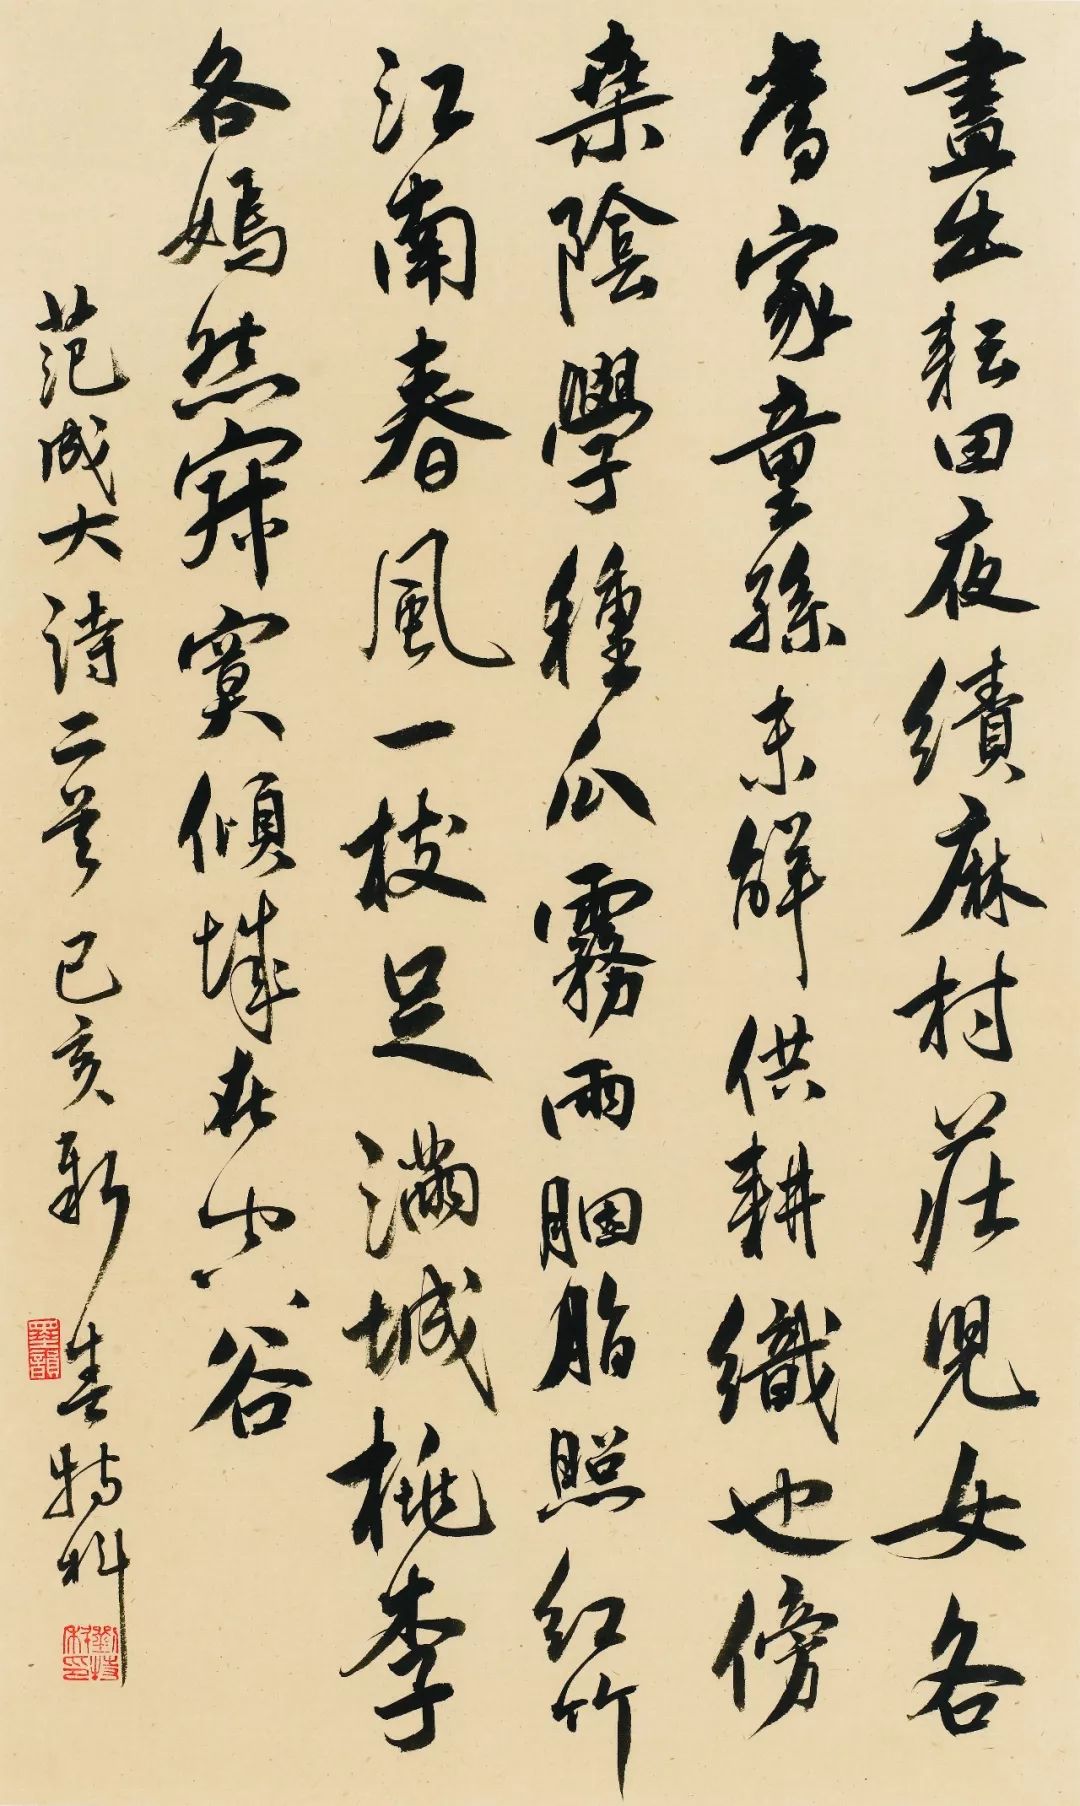 晝出耘田夜績麻村莊兒女各
當家童孫未解供耕織也傍
桑陰學種瓜霧雨胭脂照紅竹
江南春風一枝足滿城桃李
各嫣然寂寞傾城在空谷
范成大詩二首己亥新春特科
劉特科印